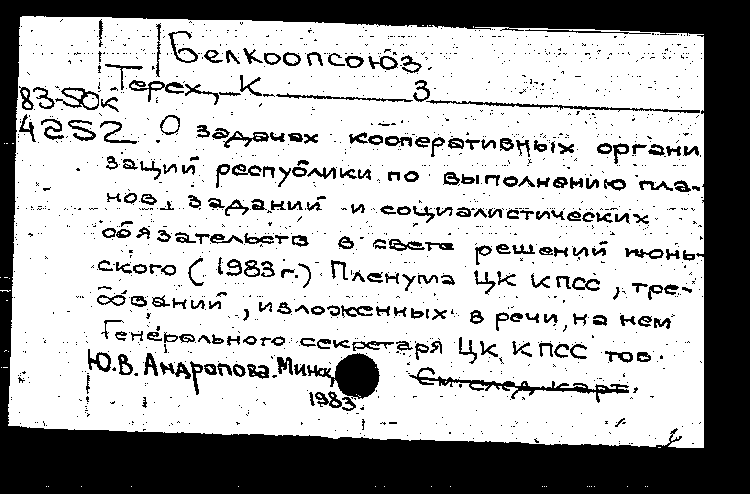 Белкоопсоюз.
Терех, К 3
83-50к
4252 О задачах кооперативных органи
заций республики по выполнению пла-
нов, заданий и социалистических
обязательств в свете решений июнь-
ского (1983г.) Пленума ЦК КПСС, тре-
бований, изложенных в речи на нем
Генерального секретаря ЦК КПСС тов.
Ю.В. Андропова. Минск,
См. след. карт.
1983.